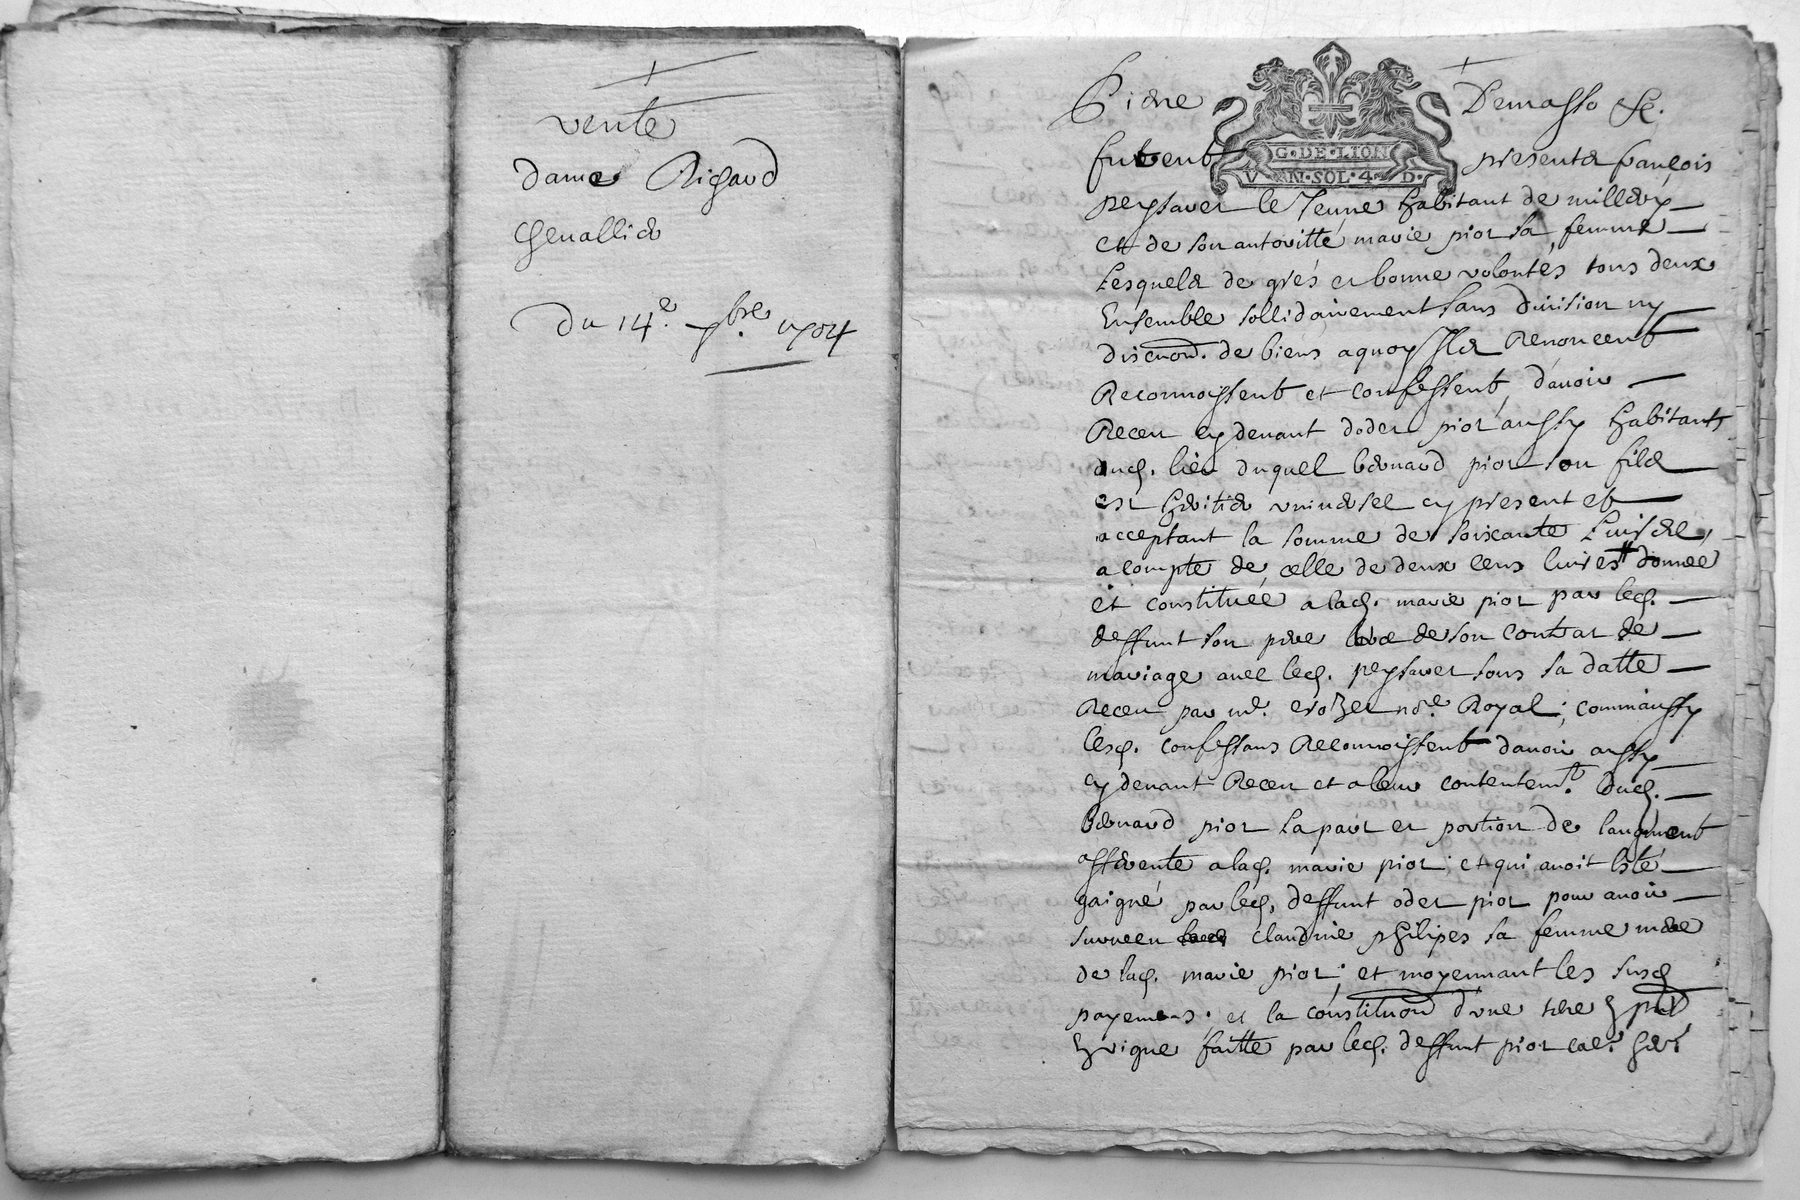 vente
dame Rigaud
Chevallier
Du 14.e 7.bre 1704
Pierre Demasso &c.
G·DE·LION
V N·SOL·4·D·
furent presents françois
peysaret le Jeune habitant de millery
et de son autoritté marie piot sa femme
Lesquels de grés et bonne volontés tous deux
Ensemble sollidairement sans division ny
discuon. de biens a quoy Ils Renoncent
Reconnoissent et confessent d'avoir
Receu cy devant dodet piot aussy habitant
dud. lieu duquel bernard piot son fils
est heritier universel cy present et
acceptant la somme de soixante Livres
a compte de celle de deux cens livres donnee
et constituée a lad. marie piot par led.
deffunt son pere lors de son contrat de
mariage avec led. peysaret sous sa datte
Receu par me. crozet nore Royal; comm'aussy
lesd. confessans Reconnoissent d'avoir aussy
cy devant Receu et a leur contentemt. dud.
bernard piot La part et portion de laugment
afferente a lad. marie piot et qui avoit Esté
gaigné par led. deffunt odet piot pour avoir
surveceu claudine philipes sa femme mere
de lad. marie piot; et moyennant les susd
payemens. et la constituon d'une terre & pred
& vigne faitte par led. deffunt piot